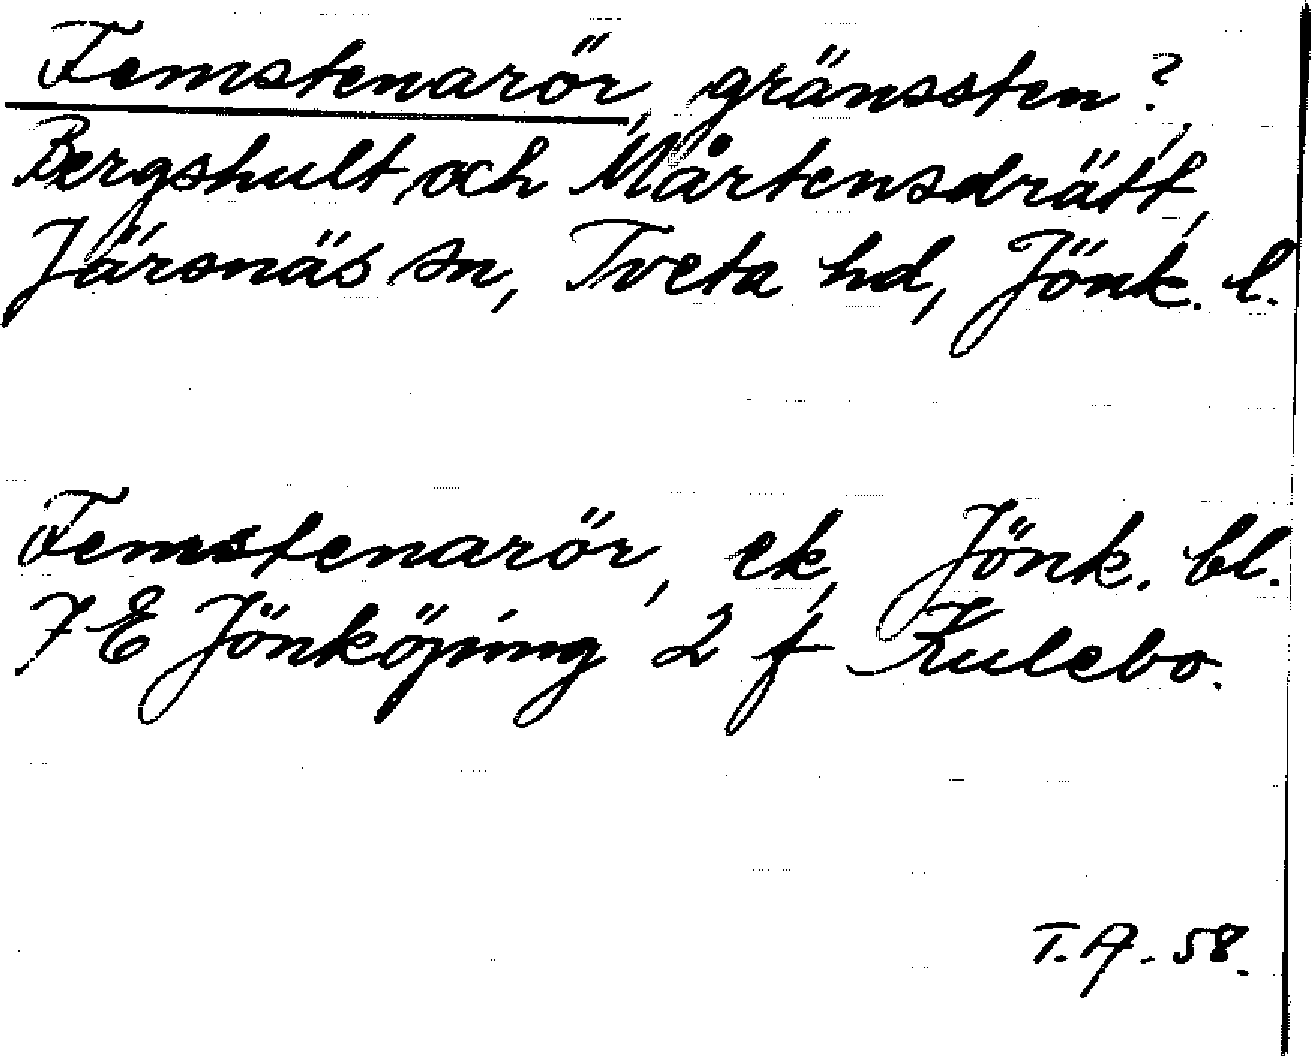 Femstenarör, gränssten?,
Bergshult och Mårtensdrätt,
Järsnäs sn, Tveta hd, Jönk. l.
Femstenarör, ek, Jönk. bl.
7E Jönköping 2 f Kulebo.
T.A. 58.